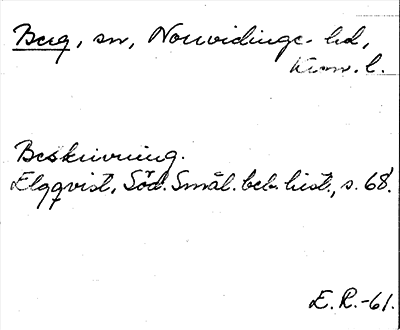 Berg, sn, Norrvidinge hd,
Kron. l.
Beskrivning.
Elgqvist, Söd. Smål. beb. hist., s. 68.
E. R. -61.